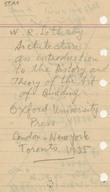 W. R. Lethaby
Architecture
an introduction
to the history and
theory of the art
of building
Oxford University
Press
London New York
Toronto 1935